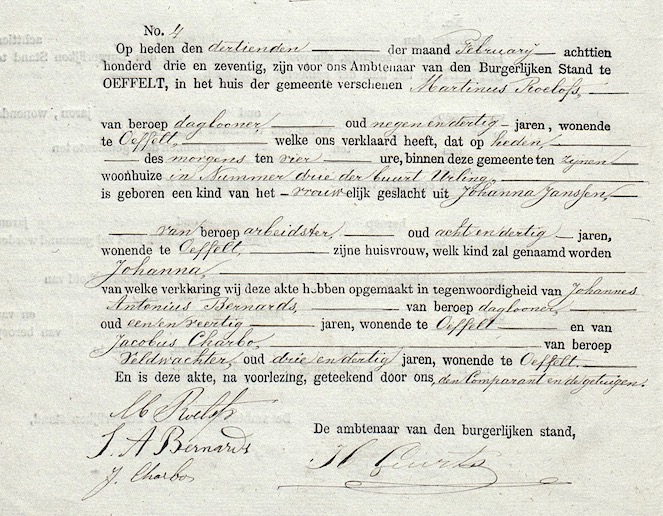 No. 4
Op heden den dertienden der maand February achttien
honderd drie en zeventig, zijn voor ons Ambtenaar van den Burgerlijken Stand te
OEFFELT, in het huis der gemeente verschenen Martinus Roelofs,
van beroep daglooner, oud negen en dertig jaren, wonende
te Oeffelt, welke ons verklaard heeft, dat op heden,
des morgens ten vier ure, binnen deze gemeente ten zijnen
woonhuize in Nummer drie der buurt Urling,
is geboren een kind van het vrouwelijk geslacht uit Johanna Janssen,
van beroep arbeidster, oud acht en dertig jaren,
wonende te Oeffelt, zijne huisvrouw, welk kind zal genaamd worden
Johanna,
van welke verklaring wij deze akte hebben opgemaakt in tegenwoordigheid van Johannes
Antonius Bernards, van beroep daglooner,
oud een en veertig jaren, wonende te Oeffelt en van
Jacobus Charbo, van beroep
Veldwachter, oud drie en dertig jaren, wonende te Oeffelt.
En is deze akte, na voorlezing, geteekend door ons, den Comparant en de getuigen.
M Roelofs
J. A Bernards
De ambtenaar van den burgerlijken stand,
J. Charbo